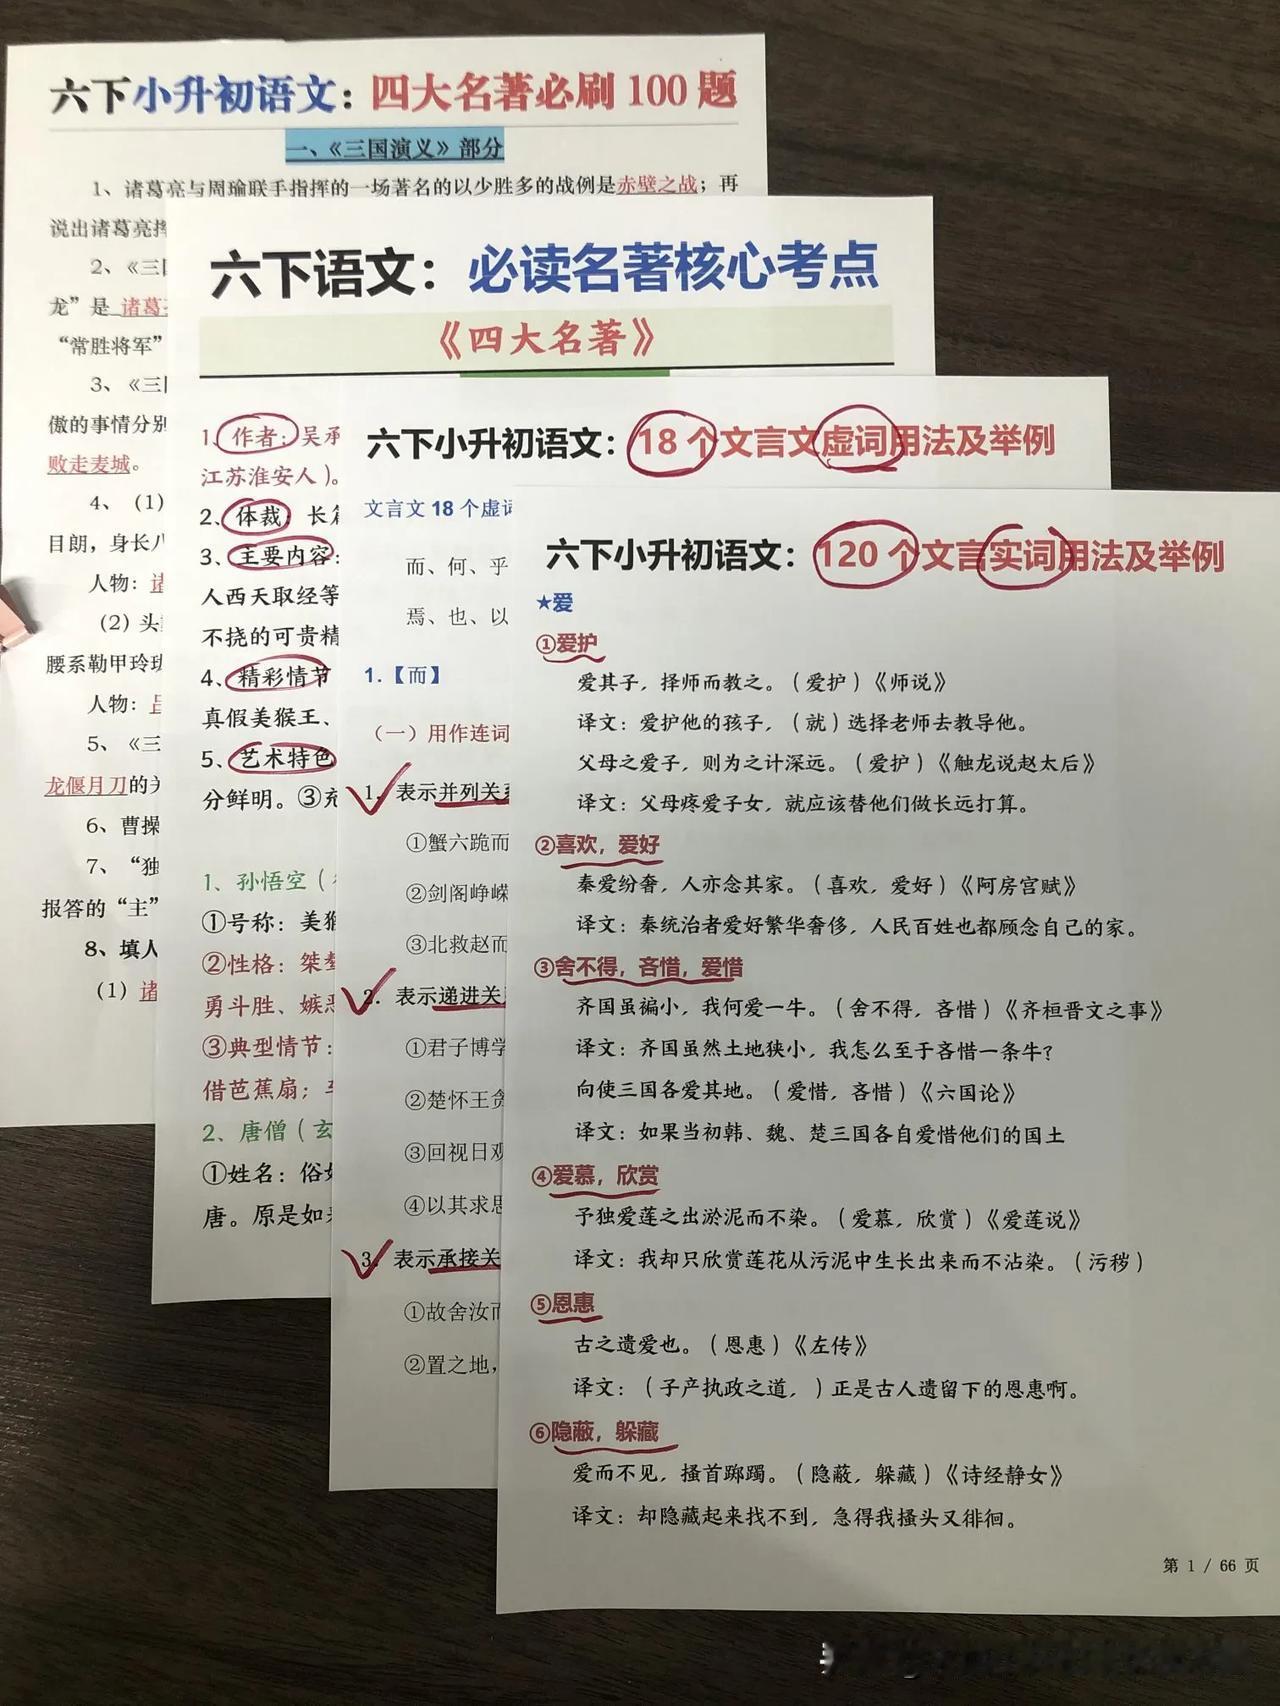 六下小升初语文：四大名著必刷100题
一、《三国演义》部分
1、诸葛亮与周瑜联手指挥的一场著名的以少胜多的战例是赤壁之战；再
说出诸葛亮挥
2、《三国
龙”是 诸葛亮
“常胜将军”
3、《三国
傲的事情分别
败走麦城。
4、（1）
目朗，身长八
人物：诸
（2）头
腰系勒甲玲珑
人物：吕
5、《三
龙偃月刀的关
6、曹操
7、“独
报答的“主”
8、填人
（1）诸
六下语文：必读名著核心考点
《四大名著》
1、作者：吴承
江苏淮安人）。
2、体裁：长篇
3、主要内容：
人西天取经等
不挠的可贵精
4、精彩情节
真假美猴王、
5、艺术特色
分鲜明。③充
1、孙悟空（
①号称：美猴
②性格：桀骜
勇斗胜、嫉恶
③典型情节：
借芭蕉扇；车
2、唐僧（玄
①姓名：俗姓
唐。原是如来
六下小升初语文：18个文言文虚词用法及举例
文言文18个虚词
而、何、乎
焉、也、以
1.【而】
（一）用作连词
1. 表示并列关系
①蟹六跪而
②剑阁峥嵘
③北救赵而
2. 表示递进关
①君子博学
②楚怀王贪
③回视日观
④以其求思
3. 表示承接关
①故舍汝而
②置之地，
六下小升初语文：120个文言实词用法及举例
★爱
①爱护
爱其子，择师而教之。（爱护）《师说》
译文：爱护他的孩子，（就）选择老师去教导他。
父母之爱子，则为之计深远。（爱护）《触龙说赵太后》
译文：父母疼爱子女，就应该替他们做长远打算。
②喜欢，爱好
秦爱纷奢，人亦念其家。（喜欢，爱好）《阿房宫赋》
译文：秦统治者爱好繁华奢侈，人民百姓也都顾念自己的家。
③舍不得，吝惜，爱惜
齐国虽褊小，我何爱一牛。（舍不得，吝惜）《齐桓晋文之事》
译文：齐国虽然土地狭小，我怎么至于吝惜一条牛？
向使三国各爱其地。（爱惜，吝惜）《六国论》
译文：如果当初韩、魏、楚三国各自爱惜他们的国土
④爱慕，欣赏
予独爱莲之出淤泥而不染。（爱慕，欣赏）《爱莲说》
译文：我却只欣赏莲花从污泥中生长出来而不沾染。（污秽）
⑤恩惠
古之遗爱也。（恩惠）《左传》
译文：（子产执政之道，）正是古人遗留下的恩惠啊。
⑥隐蔽，躲藏
爱而不见，搔首踯躅。（隐蔽，躲藏）《诗经静女》
译文：却隐藏起来找不到，急得我搔头又徘徊。
第 1 / 66 页